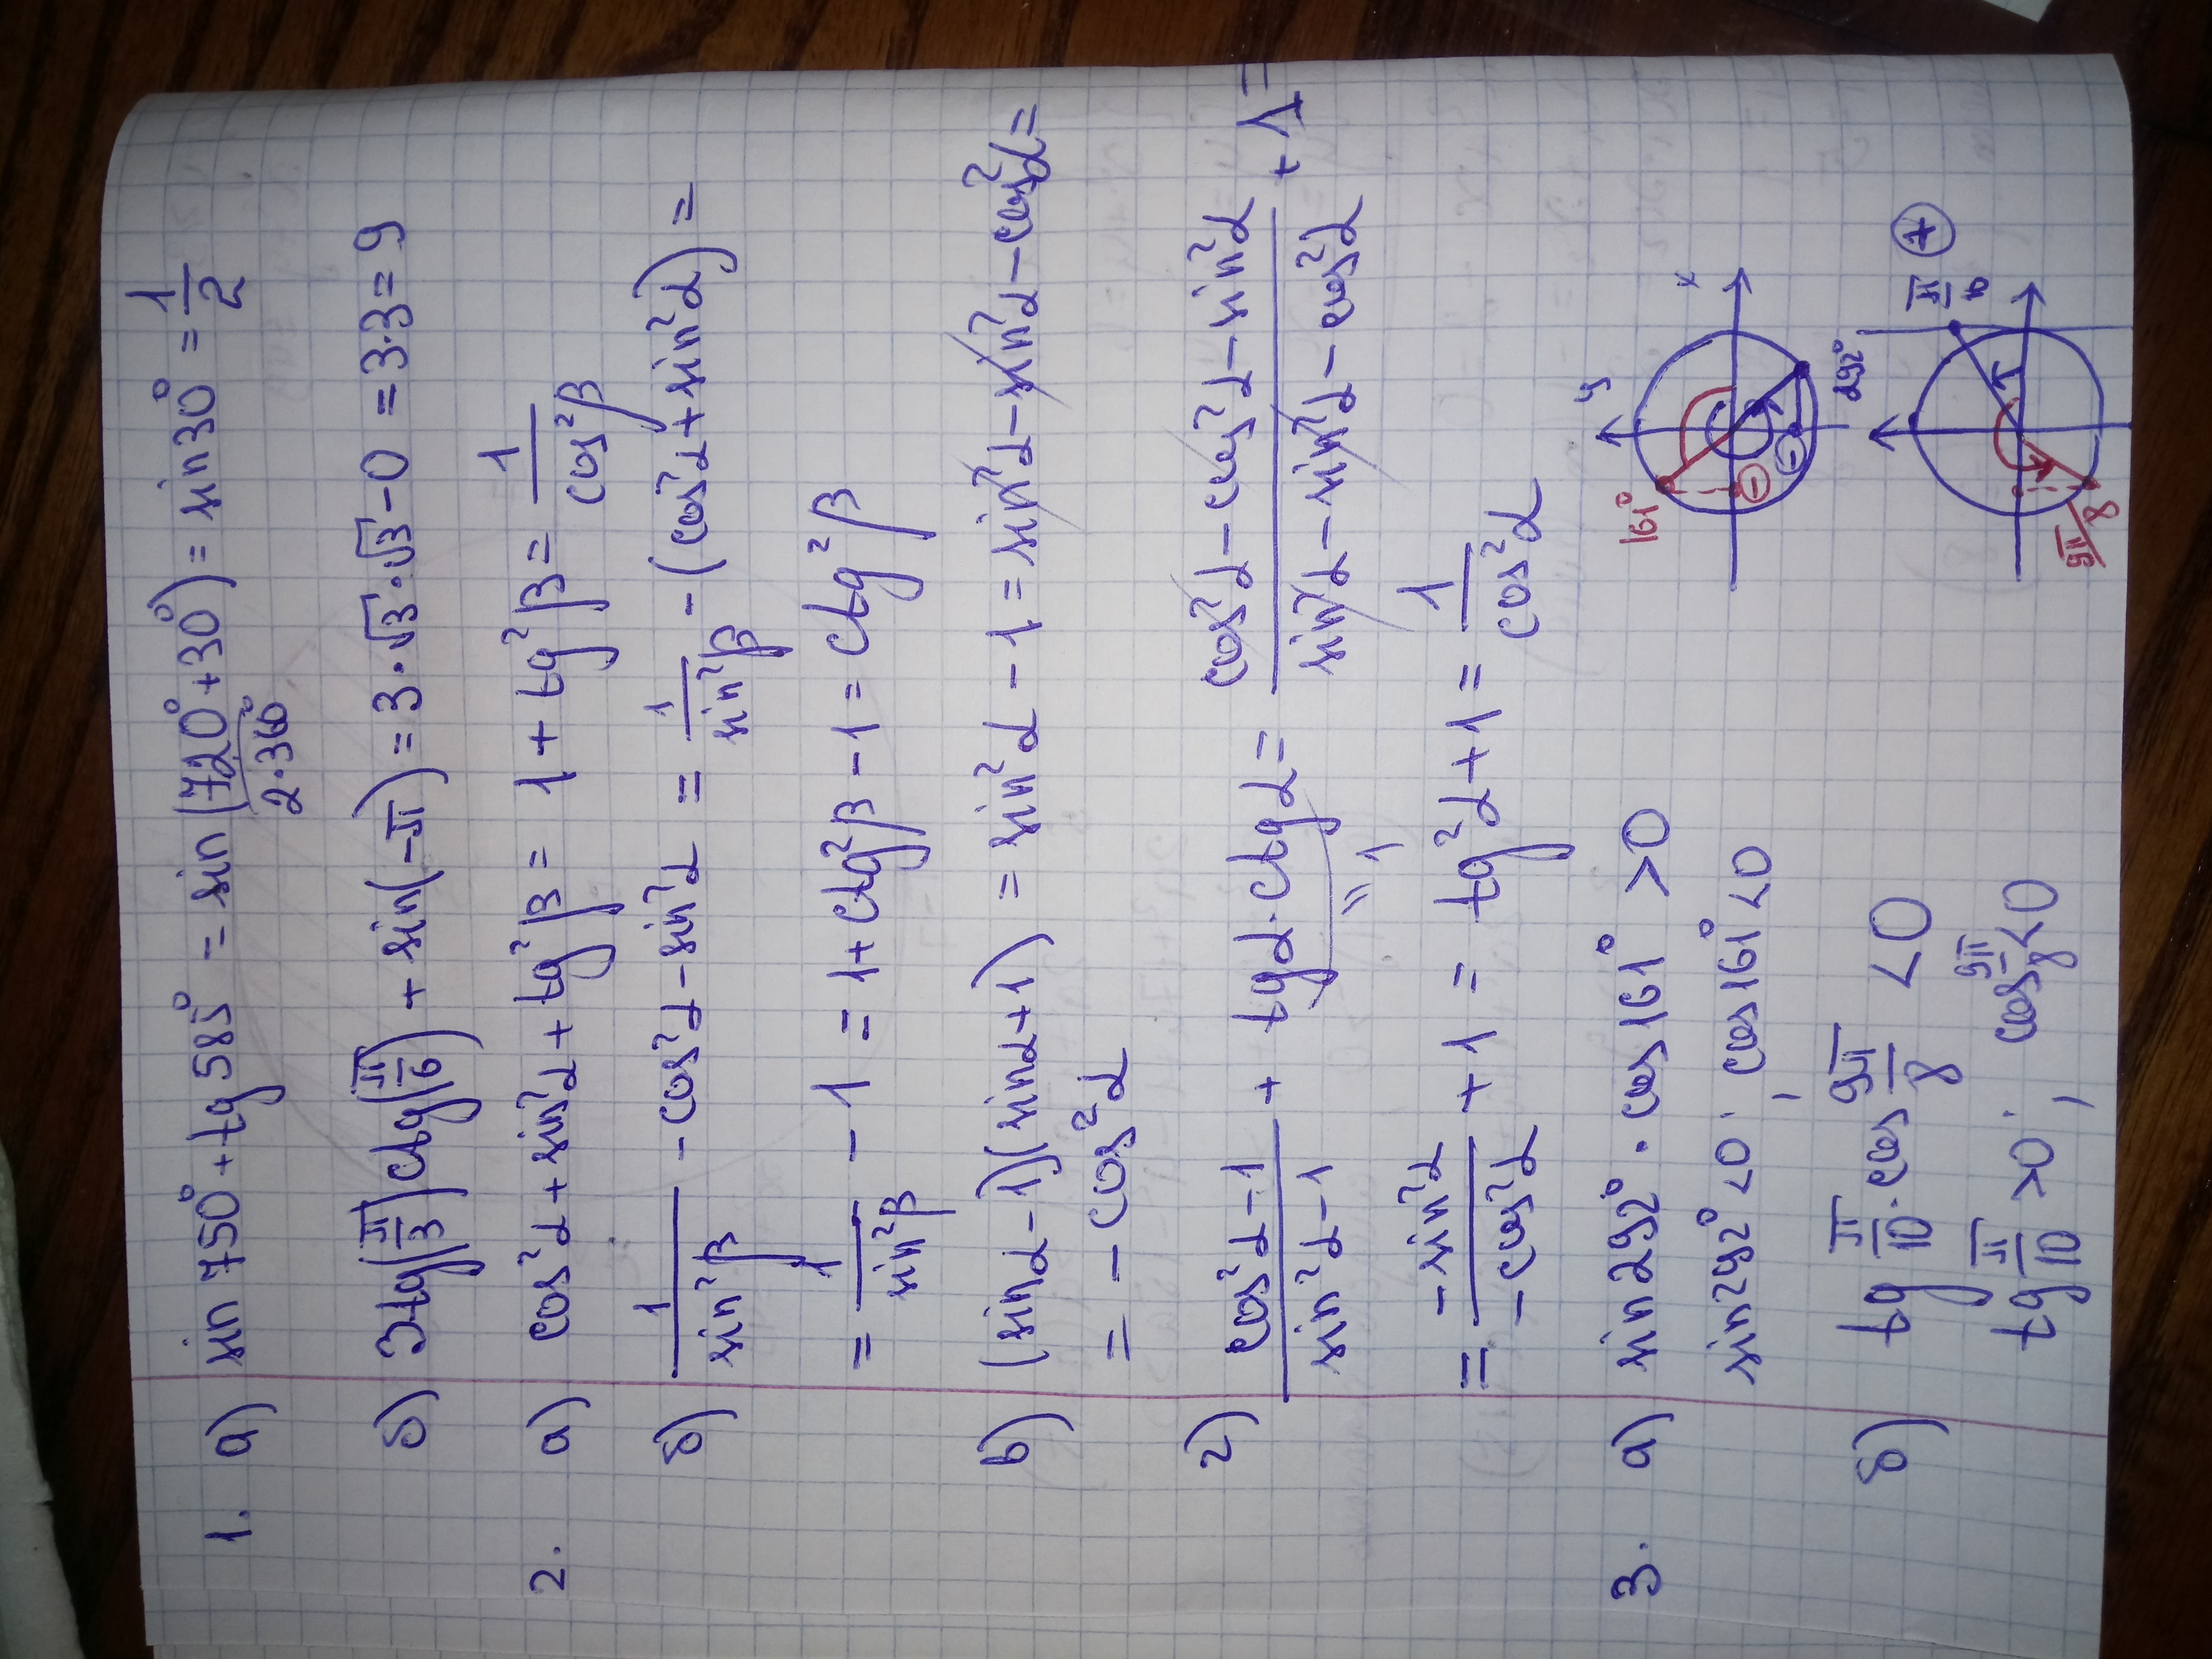 1. а) sin 750° + tg 585° = sin (720° + 30°) = sin 30° = 1/2
2·360°
б) 3tg(π/3) ctg(π/6) + sin(-π) = 3·√3·√3 - 0 = 3·3 = 9
2. а) cos²α + sin²α + tg²β = 1 + tg²β = 1/cos²β
б) 1/sin²β - cos²α - sin²α = 1/sin²β - (cos²α + sin²α) =
= 1/sin²β - 1 = 1 + ctg²β - 1 = ctg²β
в) (sinα - 1)(sinα + 1) = sin²α - 1 = sin²α - sin²α - cos²α =
= - cos²α
г) (cos²α - 1)/(sin²α - 1) + tgα·ctgα = (cos²α - cos²α - sin²α)/(sin²α - sin²α - cos²α) + 1 =
"1
= -sin²α/-cos²α + 1 = tg²α + 1 = 1/cos²α
3. а) sin 292° · cos 161° > 0
sin 292° < 0; cos 161° < 0
y
x
161°
292°
б) tg π/10 · cos 9π/8 < 0
tg π/10 > 0; cos 9π/8 < 0
π/10 +
9π/8